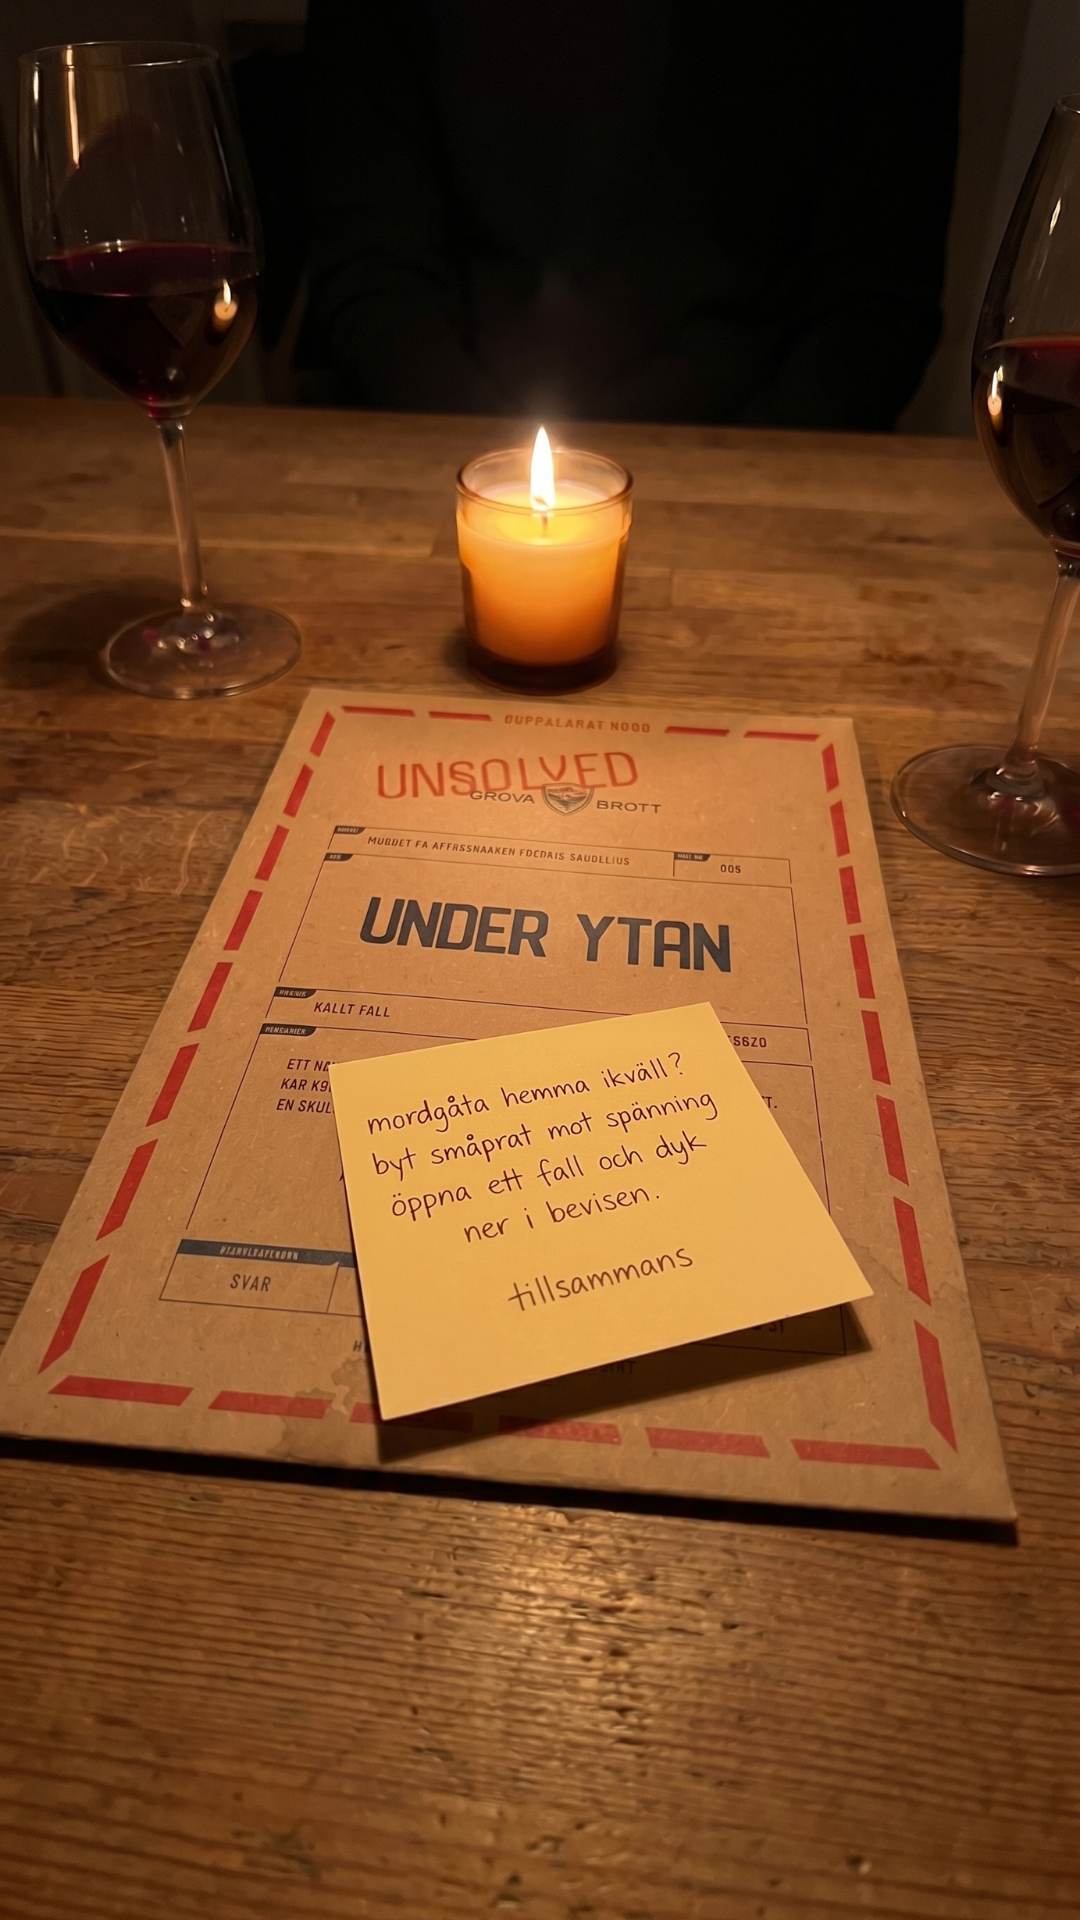 GUPPALARAT NOOD
UNSOLVED
GROVA BROTT
MURDET FA AFFRSSNAAKEN FDCDAIS SAUDELIUS
005
UNDER YTAN
KALLT FALL
ETT
KAR
EN
mordgåta hemma ikväll?
byt småprat mot spänning
öppna ett fall och dyk
ner i bevisen.
tillsammans
SVAR